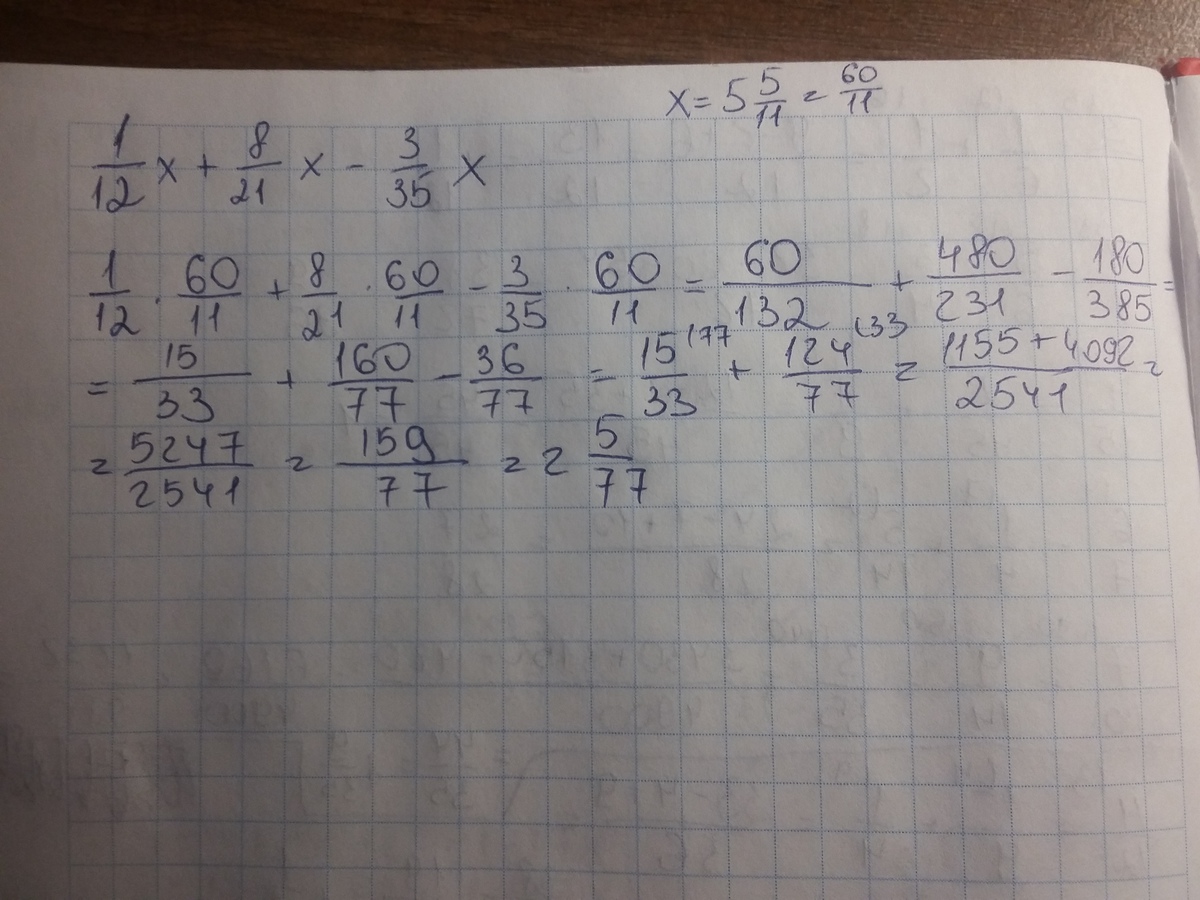 x = 5 5/11 = 60/11
1/12 x + 8/21 x - 3/35 x
1/12 · 60/11 + 8/21 · 60/11 - 3/35 · 60/11 = 60/132 + 480/231 - 180/385 =
= 15/33 + 160/77 - 36/77 = 15/33 (77 + 124/77 (33 = 1155+4092/2541 =
= 5247/2541 = 159/77 = 2 5/77